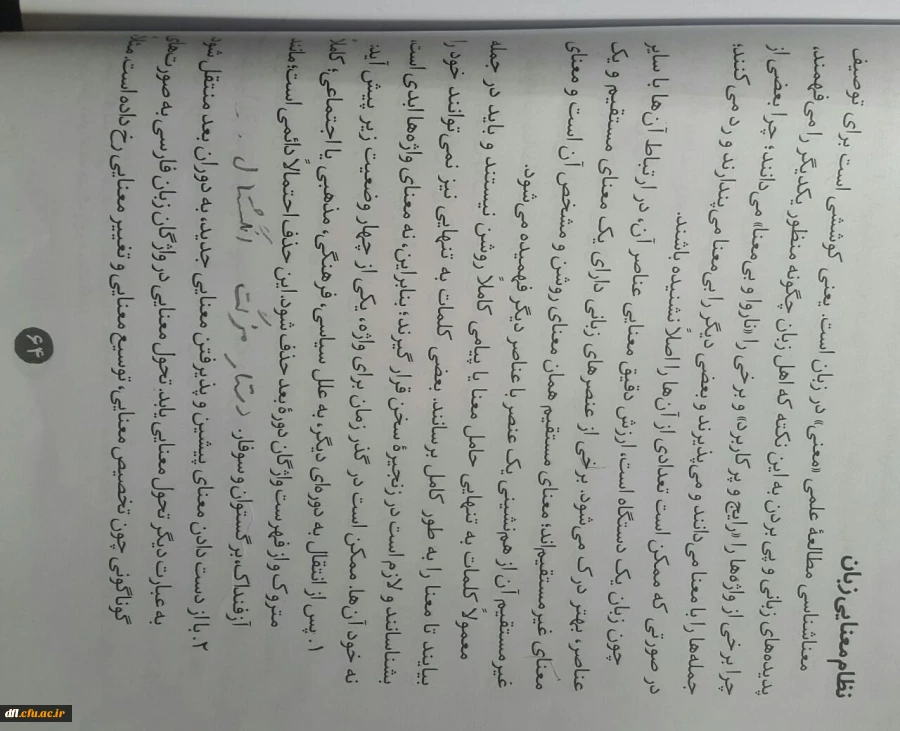 نظام معنایی زبان
معناشناسی مطالعهٔ علمی «معنی» در زبان است. یعنی کوششی است برای توصیف
پدیده‌های زبانی و پی بردن به این نکته که اهل زبان چگونه منظور یکدیگر را می‌فهمند،
چرا برخی از واژه‌ها را «رایج و پر کاربرد» و برخی را «ناروا و بی‌معنا» می‌دانند؛ چرا بعضی از
جمله‌ها را با معنا می‌دانند و می‌پذیرند و بعضی دیگر را بی‌معنا می‌پندارند و رد می‌کنند؛
در صورتی که ممکن است تعدادی از آن‌ها را اصلاً نشنیده باشند.
چون زبان یک دستگاه است، ارزش دقیق معنایی عناصر آن، در ارتباط آن‌ها با سایر
عناصر، بهتر درک می‌شود. برخی از عنصرهای زبانی دارای یک معنای مستقیم و یک
معنای غیر مستقیم‌اند؛ معنای مستقیم همان معنای روشن و مشخص آن است و معنای
غیر مستقیم آن از هم‌نشینی یک عنصر با عناصر دیگر فهمیده می‌شود.
معمولاً کلمات به تنهایی حامل معنا یا پیامی کاملاً روشن نیستند و باید در جمله
بیایند تا معنا را به طور کامل برسانند. بعضی کلمات به تنهایی نیز نمی‌توانند خود را
بشناسانند و لازم است در زنجیرهٔ سخن قرار گیرند؛ بنابراین، نه معنای واژه‌ها ابدی است،
نه خود آن‌ها. ممکن است در گذر زمان برای واژه، یکی از چهار وضعیت زیر پیش آید:
۱. پس از انتقال به دوره‌ای دیگر، به علل سیاسی، فرهنگی، مذهبی یا اجتماعی؛ کاملاً
متروک و از فهرست واژگان دورهٔ بعد حذف شود. این حذف احتمالاً دائمی است؛ مانند
آزفنداک، برگستوان و سوفار.
۲. با از دست دادن معنای پیشین و پذیرفتن معنایی جدید، به دوران بعد منتقل شود
به عبارت دیگر تحول معنایی یابد. تحول معنایی در واژگان زبان فارسی به صورت‌های
گوناگونی چون تخصیص معنایی، توسیع معنایی و تغییر معنایی رخ داده است. مثلاً
۶۴
dfl.cfu.ac.ir